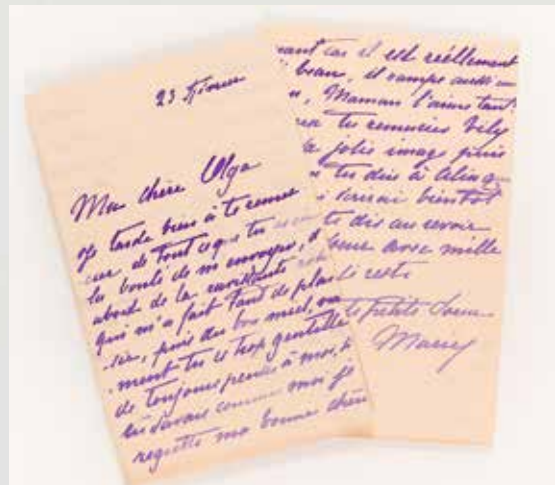 23 février
Ma chère Olga
Je tarde bien à te remer
cier de tout ce que tu as eu
la bonté de m'envoyer, d'
abord de la ravissante
qui m'a fait tant de plai
sir, puis des bonnes
ment tu es trop gentille
de toujours penser à moi,
si tu savais comme moi je
regrette ma bonne chère
car il est réellement
beau, il rampe aussi
Maman l'aime tant
tu remercies
jolie image puis
tu dis à
écrirai bientôt
te dis au revoir
avec mille
Ta petite Soeur
Marie